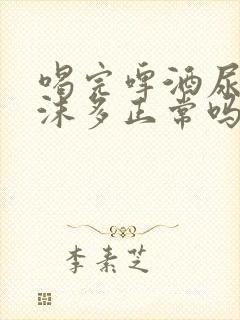 喝完啤酒尿
沫多正常吗
李素芝